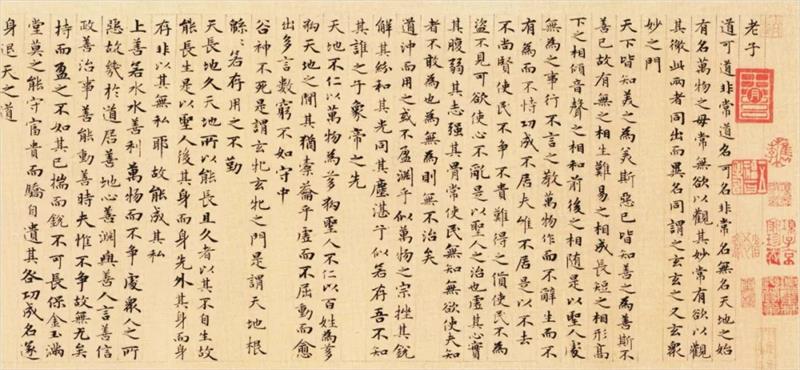 老子
道可道非常道名可名非常名無名天地之始
有名萬物之母常無欲以觀其妙常有欲以觀
其徼此兩者同出而異名同謂之玄玄之又玄衆
妙之門
天下皆知美之為美斯惡已皆知善之為善斯不
善已故有無之相生難易之相成長短之相形高
下之相傾音聲之相和前後之相随是以聖人處
無為之事行不言之教萬物作而不辭生而不
有為而不恃功成不居夫惟不居是以不去
不尚賢使民不争不貴難得之貨使民不為
盜不見可欲使心不亂是以聖人之治也虛其心實
其腹弱其志强其骨常使民無知無欲使夫知
者不敢為也為無為則無不治矣
道沖而用之或不盈淵乎似萬物之宗挫其銳
解其紛和其光同其塵湛兮似若存吾不知
其誰之子象帝之先
天地不仁以萬物為芻狗聖人不仁以百姓為芻
狗天地之間其猶橐籥乎虛而不屈動而愈
出多言數窮不如守中
谷神不死是謂玄牝玄牝之門是謂天地根
綿綿若存用之不勤
天長地久天地所以能長且久者以其不自生故
能長生是以聖人後其身而身先外其身而身
存非以其無私耶故能成其私
上善若水水善利萬物而不争處衆人之所
惡故幾於道居善地心善淵與善人言善信
政善治事善能動善時夫惟不争故無尤矣
持而盈之不如其已揣而銳不可長保金玉滿
堂莫之能守富貴而驕自遺其咎功成名遂
身退天之道